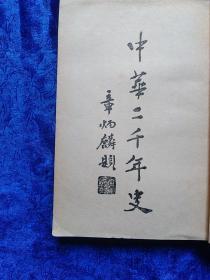 中華二千年史
章炳麟題